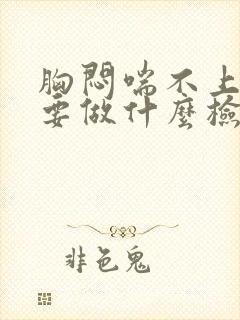 胸悶喘不上
要做什麼檢
非色鬼